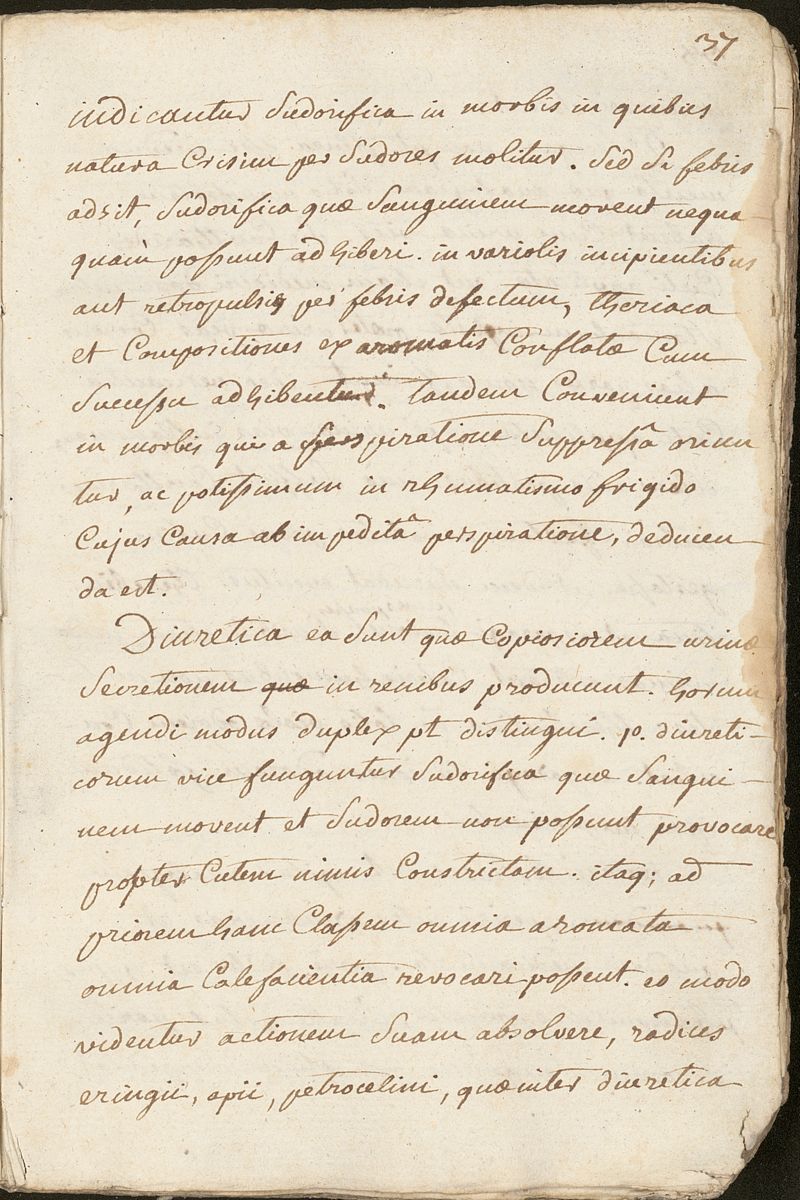 37
indicantur Sudorifica in morbis in quibus
natura Crisim per Sudores molitur. Sed Si febris
adsit, Sudorifica quæ Sanguinem movent nequa-
quam possunt adhiberi. in variolis incipientibus
aut retropulsis per febris defectum, theriaca
et Compositiones ex aromatis Conflatæ Cum
Sucessu adhibentur. tandem Conveniunt
in morbis qui a perspiratione Suppressâ oriun
tur, ac potissimum in rhumatismo frigido
Cujus Causa ab impeditâ perspiratione, deducen-
da est.
Diuretica ea Sunt quæ Copiosiorem urinæ
Secretionem quæ in renibus producunt. horum
agendi modus duplex pt distingui. 1o. diureti-
corum vice funguntur Sudorifica quæ Sangui-
nem movent et Sudorem non possunt provocare
propter Cutem nimis Constrictam. itaq; ad
priorem hanc Classem omnia aromata
omnia Calefacientia revocari possent. eo modo
videntur actionem Suam absolvere, radices
eringii, apii, petrocelini, quæ inter diuretica